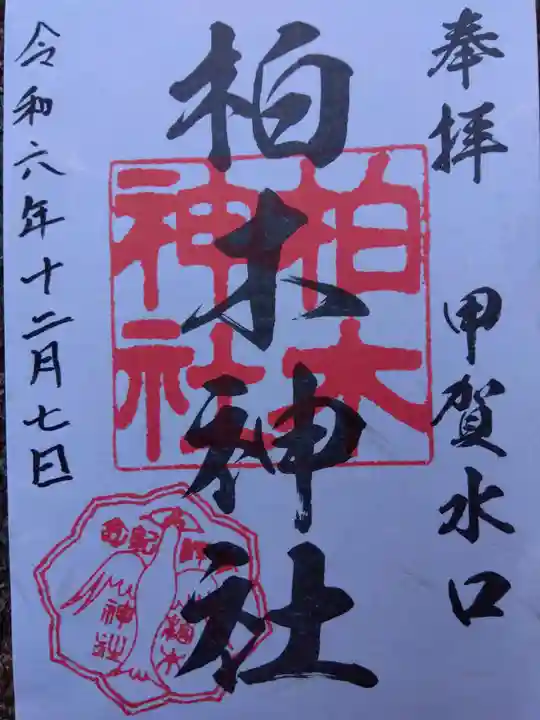 奉拝 甲賀水口
柏木神社
柏木
神社
令和六年十二月七日
柏木
神社